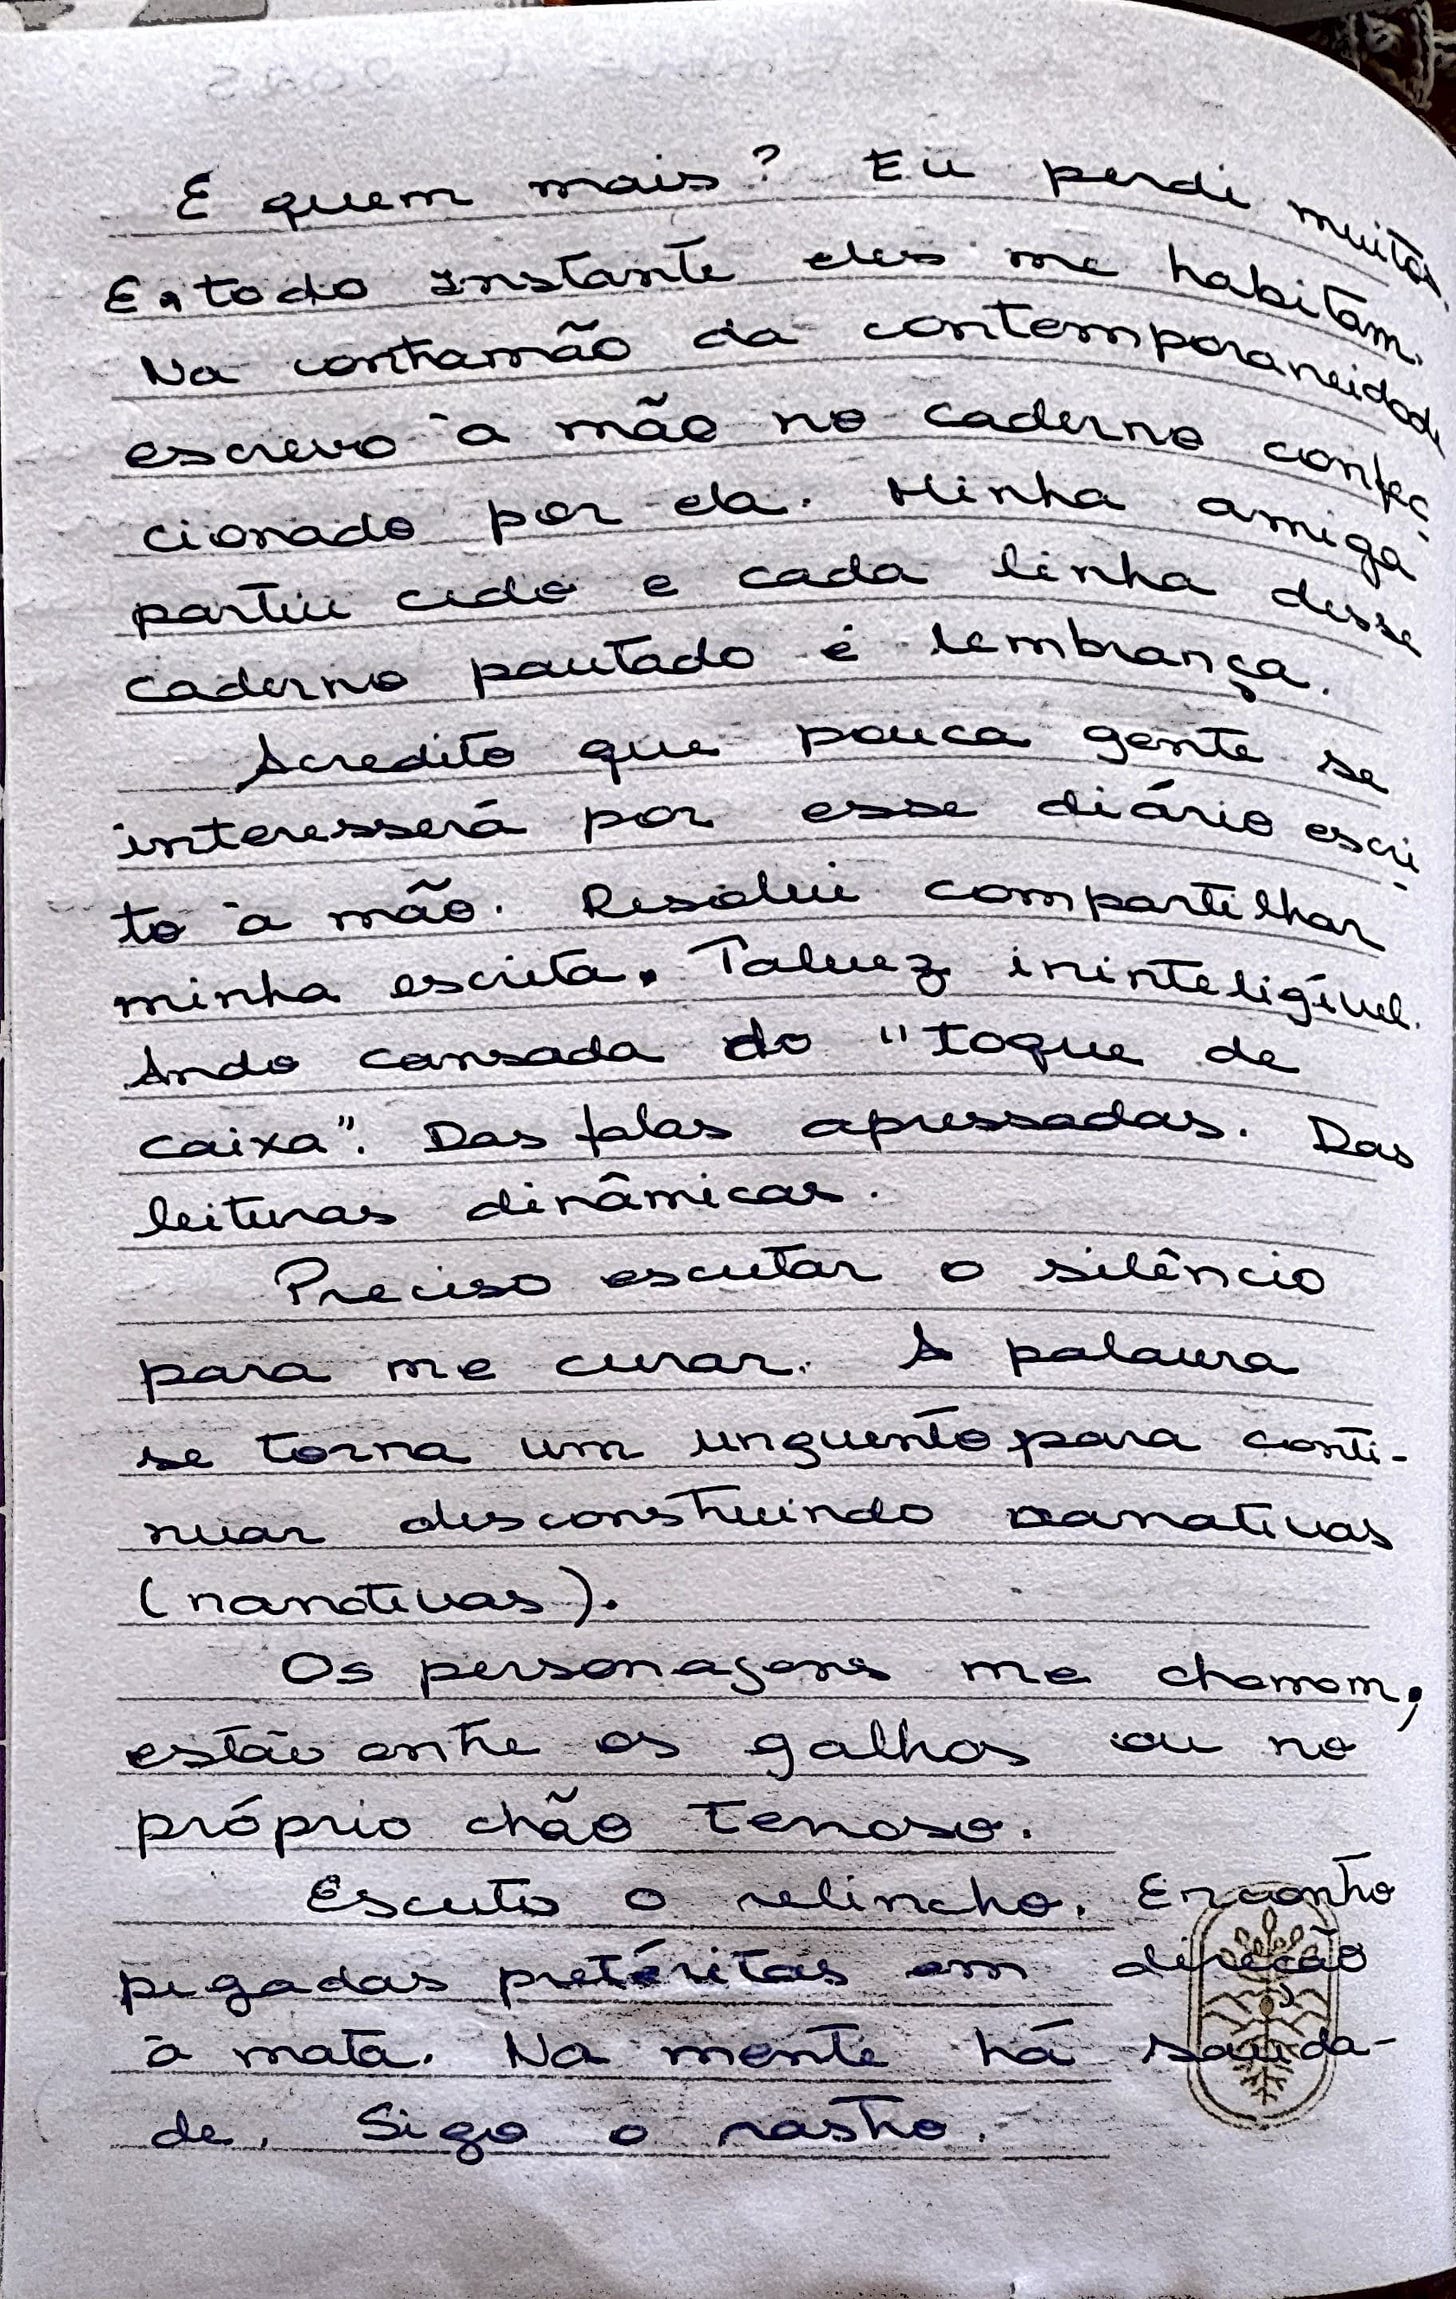 E quem mais? Eu perdi muitos.
E, todo instante eles me habitam.
Na contramão da contemporaneidade
escrevo à mão no caderno confec
cionado por ela. Minha amiga
partiu cedo e cada linha desse
caderno pautado é lembrança.
Acredito que pouca gente se
interesserá por esse diário escri
to à mão. Resolvi compartilhar
minha escrita. Talvez ininteligível.
Ando cansada do "toque de
caixa". Das falas apressadas. Das
leituras dinâmicas.
Preciso escutar o silêncio
para me curar. A palavra
se torna um unguento para conti-
nuar desconstruindo narrativas
(narrativas).
Os personagens me chamam,
estão entre os galhos ou no
próprio chão terroso.
Escuto o relincho. Encontro
pegadas pretéritas em direção
à mata. Na mente há sauda-
de. Sigo o rastro.